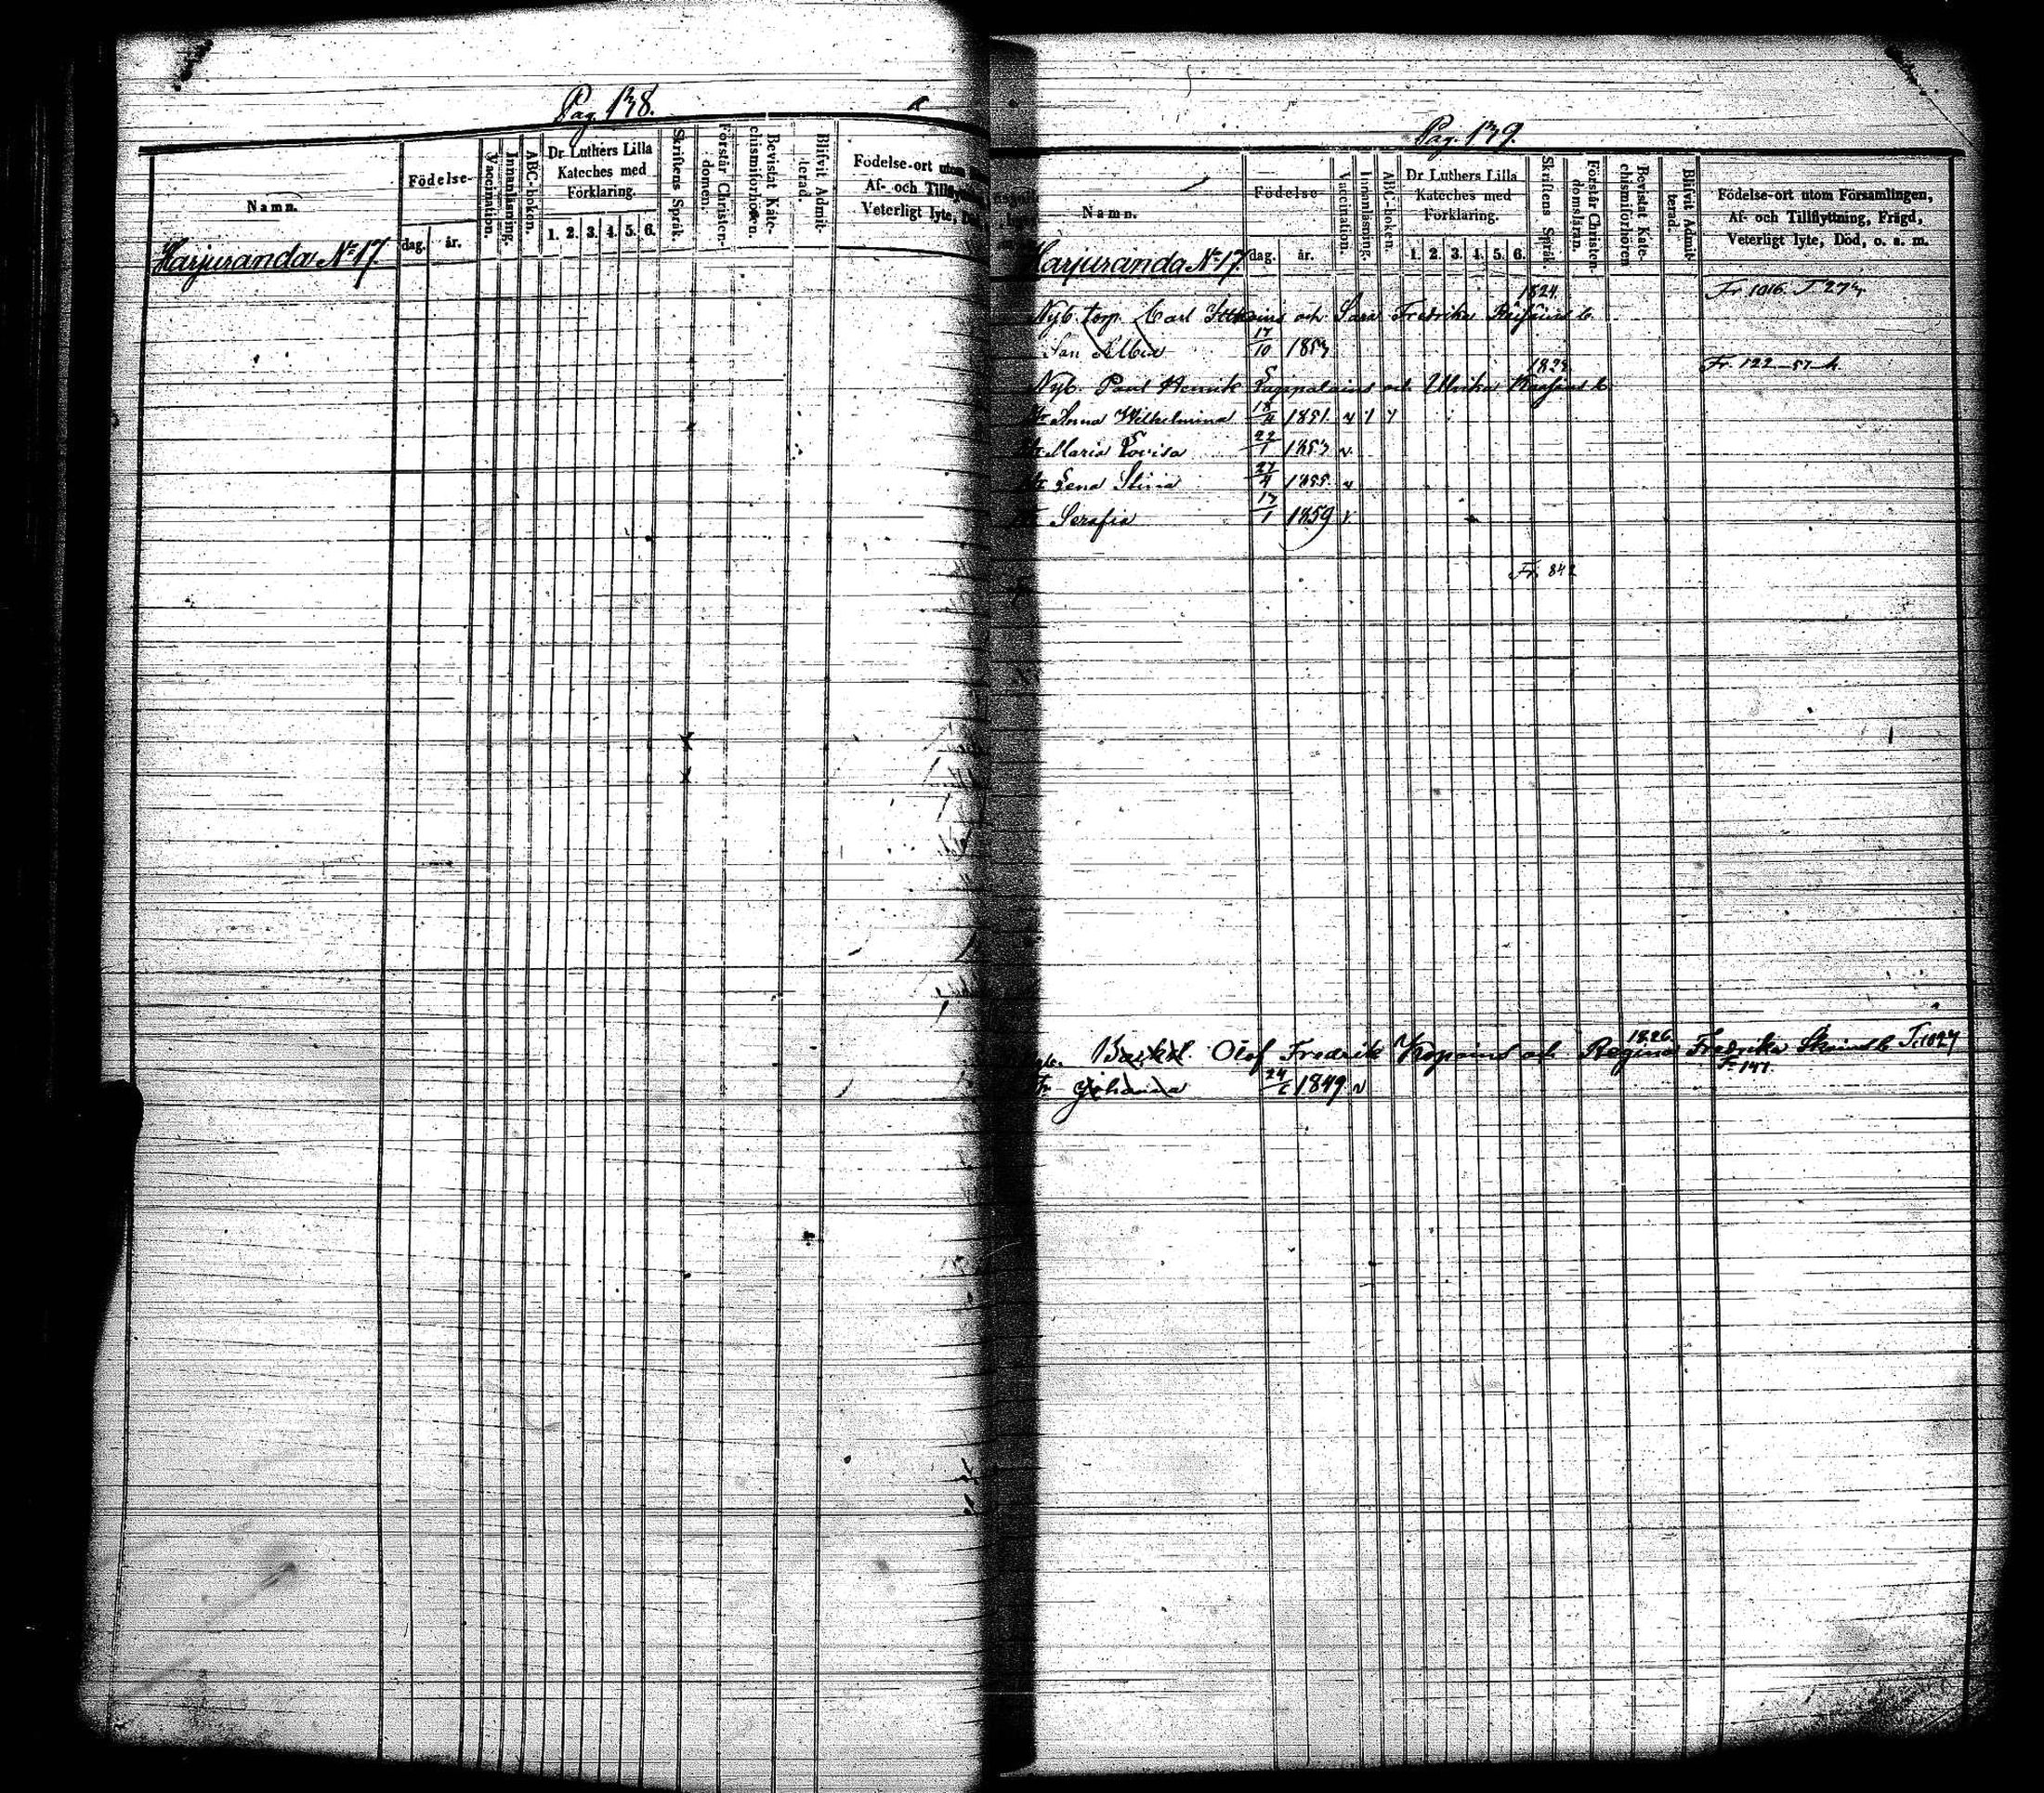 Pag. 138.
Namn.
Födelse-
dag.
år.
Vaccination.
Innanläsning.
ABC-boken.
Dr Luthers Lilla
Kateches med
Förklaring.
1. 2. 3. 4. 5. 6.
Skriftens Språk.
Förstår Christen-
domen.
Bevistat Kate-
chismiförhören.
Blifvit Admit-
terad.
Födelse-ort utom
Af- och Tillflyttning,
Veterligt lyte, Död,
Harjuranda No 17
Pag. 139.
Namn.
Födelse
dag.
år.
Vaccination.
Innanläsning.
ABC-boken.
Dr Luthers Lilla
Kateches med
Förklaring.
1. 2. 3. 4. 5. 6.
Skriftens Språk.
Förstår Christen-
domsläran.
Bevistat Kate-
chismiförhören
Blifvit Admit-
terad.
Födelse-ort utom Församlingen,
Af- och Tillflyttning, Frägd,
Veterligt lyte, Död, o. s. m.
Harjuranda No 17.
1824. Fr 1016.
Nyb. torp. Carl och Sara Fredrika
Son Albin 17/10 1853
Fr. 122
Nyb. Paul Henrik och Ulrika
Anna Wilhelmina 1851. v 1
Maria Lovisa 22/1 1853 v
Lena Stina 27/4 1855. v
Serafia 17/1 1859 v
Fr. 842
1826.
Olof Fredrik och Regina Fredrika
Fr 141
Johanna 24/6 1849 v